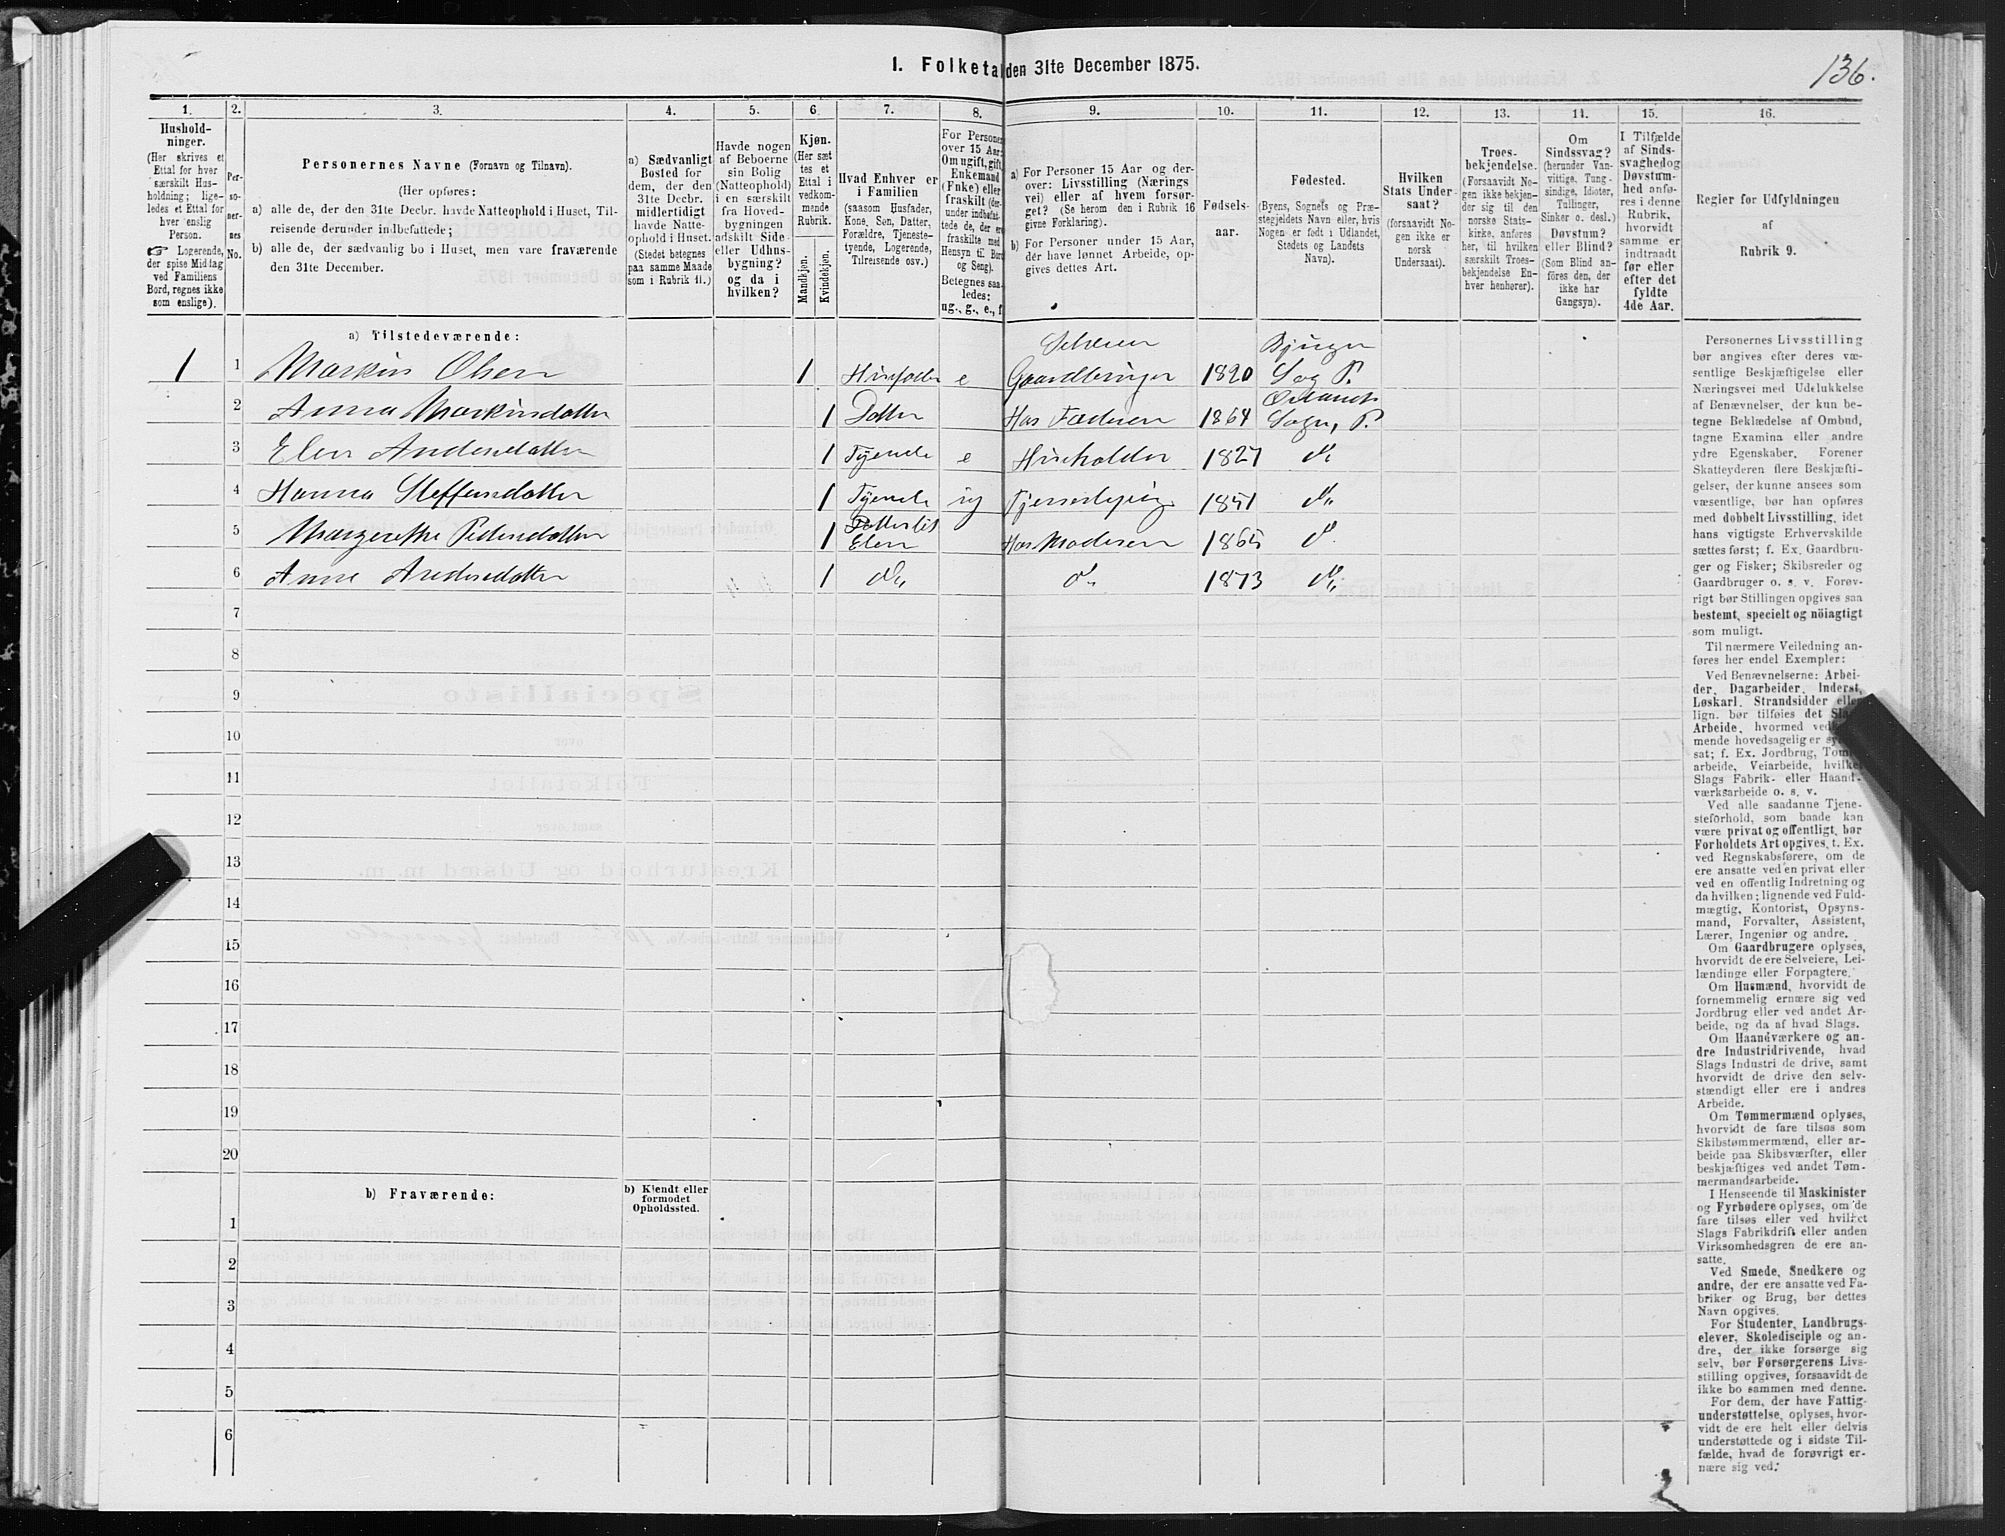 136.
I. Folketal den 31te December 1875.
1. 2. 3. 4. 5. 6. 7. 8. 9. 10. 11. 12. 13. 14. 15. 16.
Hushold-
ninger.
(Her skrives et
Ettal for hver
særskilt Hus-
holdning; lige-
ledes et Ettal for
hver enslig
Person.
☞ Logerende,
der spise Middag
ved Familiens
Bord, regnes ikke
som enslige).
Per-
so-
ner-
nes
No.
Personernes Navne (Fornavn og Tilnavn).
(Her opføres:
a) alle de, der den 31te Decbr. havde Natteophold i Huset, Til-
reisende derunder indbefattede;
b) alle de, der sædvanlig bo i Huset, men vare fraværende
den 31te December.
a) Sædvanligt
Bosted for
dem, der den
31te Decbr.
midlertidigt
havde Natte-
ophold i Huset.
(Stedet betegnes
paa samme Maade
som i Rubrik 11.)
Havde nogen
af Beboerne
sin Bolig
(Natteophold)
i en særskilt
fra Hoved-
bygningen
adskilt Side-
eller Udhus-
bygning?
og da i
hvilken?
Kjøn.
(Her sæt
tes et
Ettal i
vedkom-
mende
Rubrik.
Mandkjøn.
Kvindekjøn.
Hvad Enhver er
i Familien
(saasom Husfader,
Kone, Søn, Datter,
Forældre, Tjeneste-
tyende, Logerende,
Tilreisende osv.)
For Personer
over 15 Aar:
Om ugift, gift,
Enkemand
(Enke) eller
fraskilt (der-
under indbefat-
tede de, der ere
fraskilte med
Hensyn til Bord
og Seng).
Betegnes saa-
ledes:
ug., g., e., f.
a) For Personer 15 Aar og der-
over: Livsstilling (Nærings
vei) eller af hvem forsør-
get? (Se herom den i Rubrik 16
givne Forklaring).
b) For Personer under 15 Aar,
der have lønnet Arbeide, op-
gives dettes Art.
Fødsels-
aar.
Fødested.
(Byens, Sognets og Præ-
stegjeldets Navn eller, hvis
Nogen er født i Udlandet,
Stedets og Landets
Navn).
Hvilken
Stats Under-
saat?
(forsaavidt No-
gen ikke er
norsk
Undersaat).
Troes-
bekjendelse.
(Forsaavidt No-
gen ikke bekjen-
der sig til den
norske Stats-
kirke, anføres
her, til hvilken
særskilt Troes-
bekjendelse En-
hver henhører).
Om
Sindssvag?
(herunder Van-
vittige, Tung-
sindige, Idioter,
Tullinger,
Sinker o. desl.)
Døvstum?
eller Blind?
(Som Blind an-
føres den, der
ikke har
Gangsyn).
I Tilfælde
af Sinds-
svaghed og
Døvstum-
hed anfø-
res i denne
Rubrik,
hvorvidt
samme er
indtraadt
før eller
efter det
fyldte
4de Aar.
Regler for Udfyldningen
af
Rubrik 9.
a) Tilstedeværende:
Selveier Bjugn
1 1 Markus Olsen 1 Husfader e Gaardbruger 1820 Sog P.
Ørlands
2 Anna Markusdatter 1 Datter Hos Faderen 1864 Sogn, P.
3 Elen Andersdatter 1 Tyende e Husholder 1827 do
4 Hanna Steffensdatter 1 Tyende ug Tjenestepige 1851 do
5 Margrethe Pedersdatter 1 Datter til Elen Hos Moderen 1865 do
6 Anne Andersdatter 1 do do 1873 do
7
8
9
10
11
12
13
14
15
16
17
18
19
20
b) Fraværende:
b) Kjendt eller
formodet
Opholdssted.
1
2
3
4
5
6
Personernes Livsstilling
bør angives efter deres væ-
sentlige Beskjæftigelse eller
Næringsvei med Udelukkelse
af Benævnelser, der kun be-
tegne Beklædelse af Ombud,
tagne Examina eller andre
ydre Egenskaber. Forener
Skatteyderen flere Beskjæfti-
gelser, der kunne ansees som
væsentlige, bør han opføres
med dobbelt Livsstilling, idet
hans vigtigste Erhvervskilde
sættes først; f. Ex. Gaardbru-
ger og Fisker; Skibsreder og
Gaardbruger o. s. v. Forøv-
rigt bør Stillingen opgives saa
bestemt, specielt og nöiagtigt
som muligt.
Til nærmere Veiledning an-
føres her endel Exempler:
Ved Benævnelserne: Arbei-
der, Dagarbeider, Inderst,
Løskarl, Strandsidder eller
lign. bør tilføies det Slags
Arbeide, hvormed vedkom-
mende hovedsagelig er syssel-
sat; f. Ex. Jordbrug, Tomt-
arbeide, Veiarbeide, hvilket
Slags Fabrik- eller Haand-
værksarbeide o. s. v.
Ved alle saadanne Tjene-
steforhold, som baade kan
være privat og offentligt, bør
Forholdets Art opgives, f. Ex.
ved Regnskabsførere, om de
ere ansatte ved en privat eller
ved en offentlig Indretning og
da hvilken; lignende ved Fuld-
mægtig, Kontorist, Opsyns-
mand, Forvalter, Assistent,
Lærer, Ingeniør og andre.
Om Gaardbrugere oplyses,
hvorvidt de ere Selveiere, Lei-
lændinge eller Forpagtere.
Om Husmænd, hvorvidt de
fornemmelig ernære sig ved
Jordbrug eller ved andet Ar-
beide, og da af hvad Slags.
Om Haandværkere og an-
dre Industridrivende, hvad
Slags Industri de drive, samt
hvorvidt de drive den selv-
stændigt eller ere i andres
Arbeide.
Om Tømmermænd oplyses,
hvorvidt de fare tilsøs som
Skibstømmermænd, eller ar-
beide paa Skibsværfter, eller
beskjæftiges ved andet Tøm-
mermandsarbeide.
I Henseende til Maskinister
og Fyrbødere oplyses, om de
fare tilsøs eller ved hvilket
Slags Fabrikdrift eller anden
Virksomhedsgren de ere an-
satte.
Ved Smede, Snedkere og
andre, der ere ansatte ved Fa-
briker og Brug, bør dettes
Navn opgives.
For Studenter, Landbrugs-
elever, Skoledisciple og an-
dre, der ikke forsørge sig
selv, bør Forsørgerens Livs-
stilling opgives, forsaavidt de
ikke bo sammen med denne.
For dem, der have Fattig-
understøttelse, oplyses, hvor-
vidt de ere helt eller delvis
understøttede og i sidste Til-
fælde, hvad de forøvrigt er-
nære sig ved.